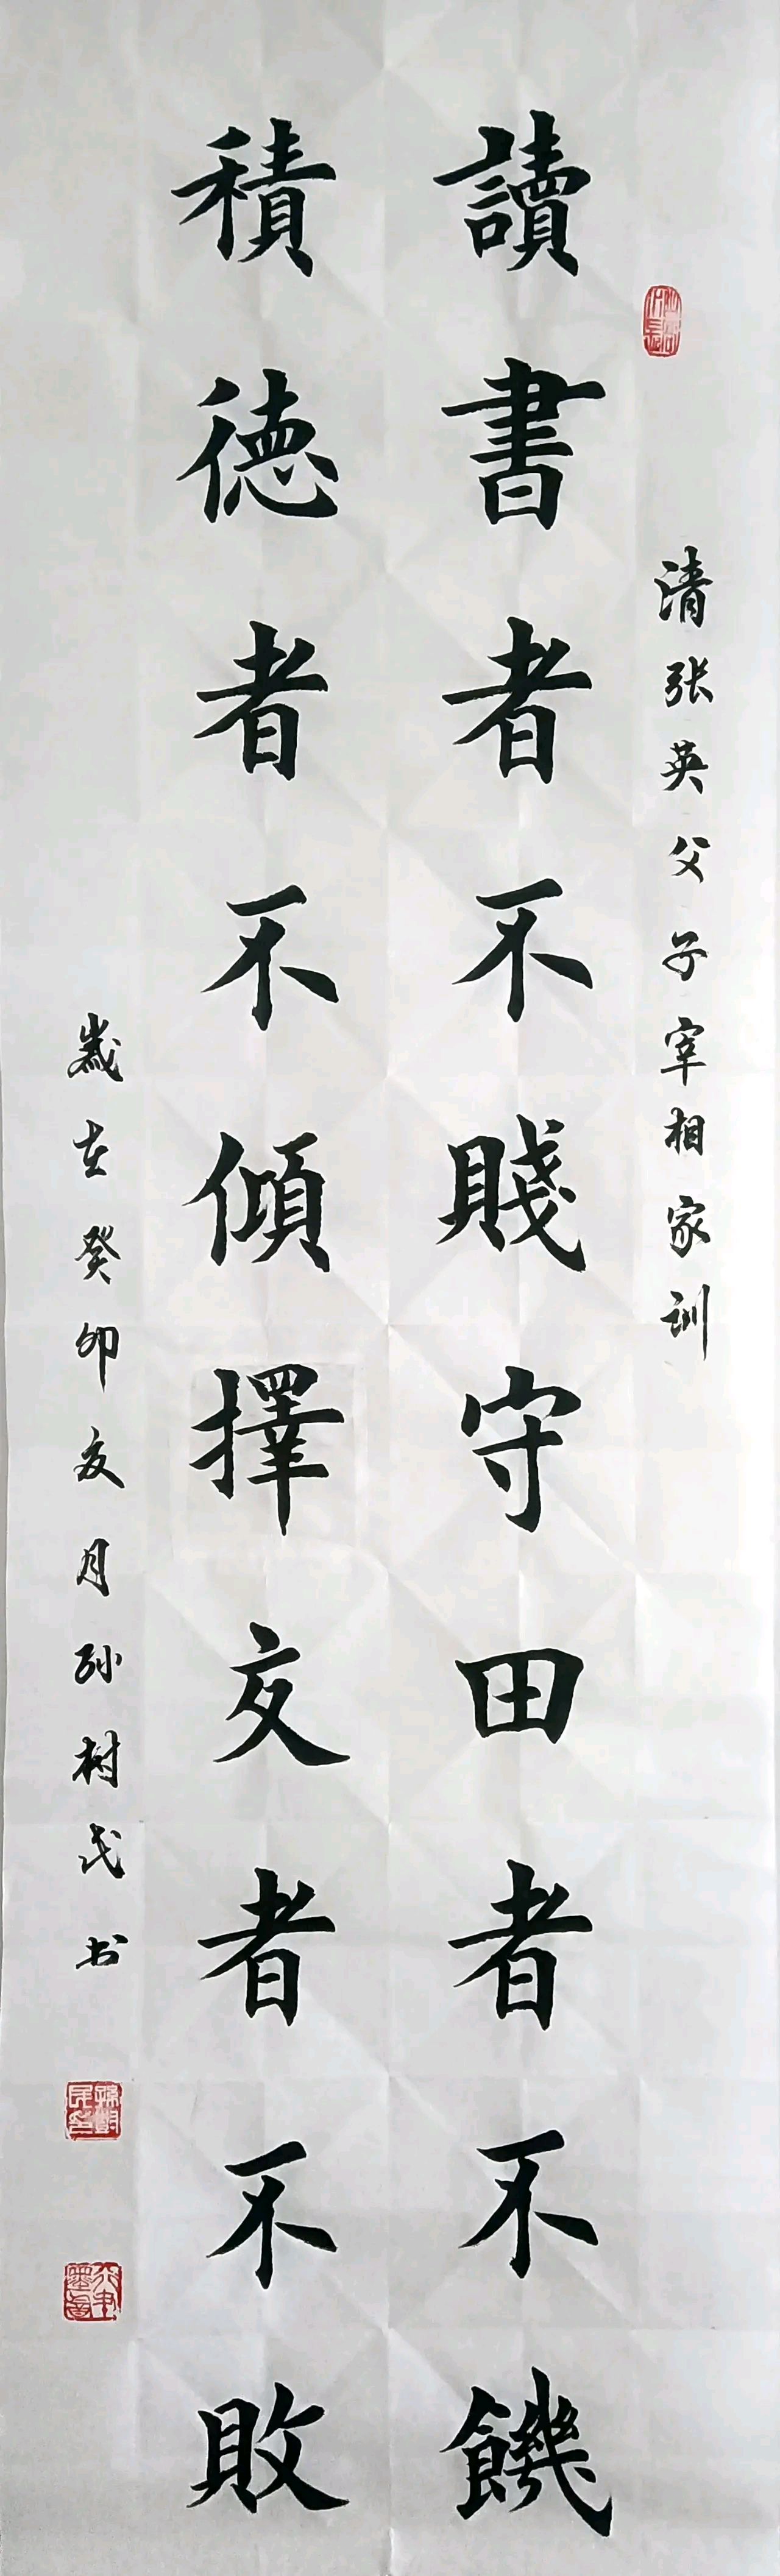 清张英父子宰相家训
讀書者不賤守田者不饑
積德者不傾擇交者不敗
歲在癸卯夏月孙树民书